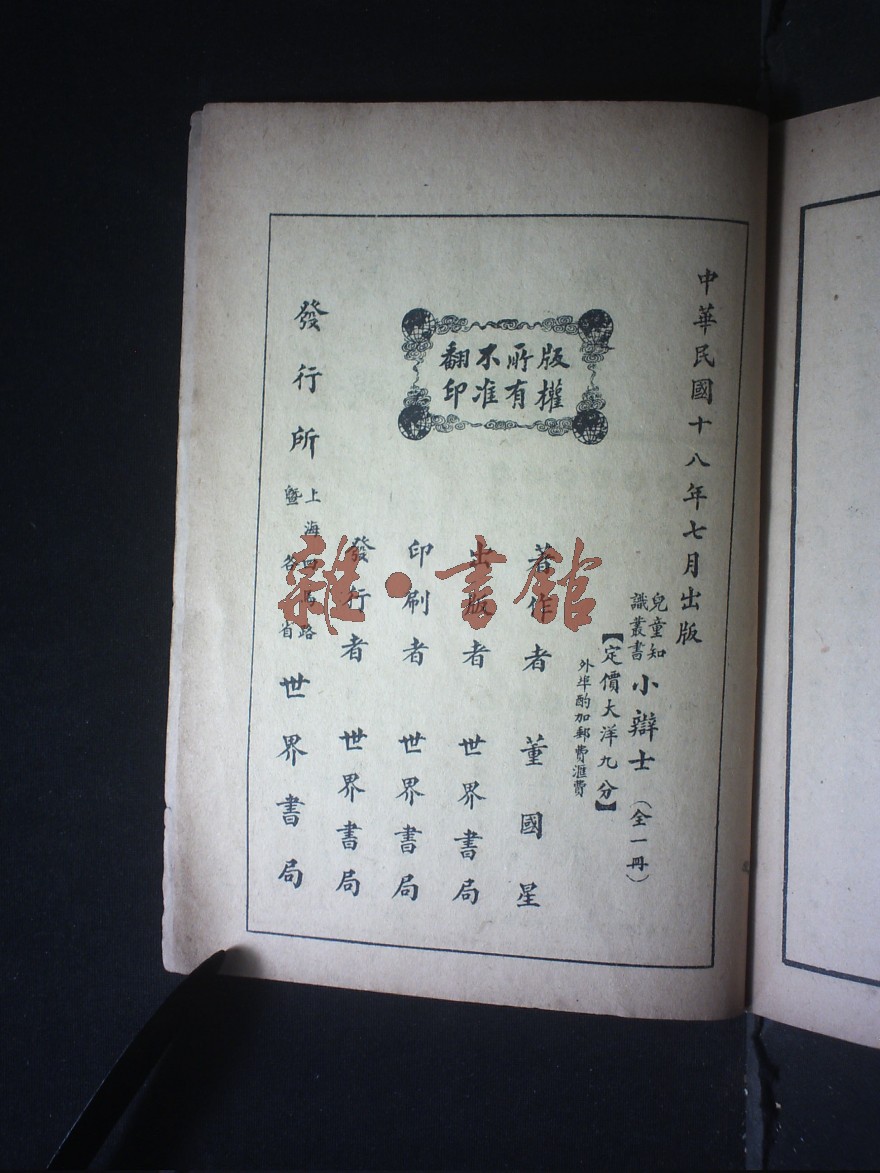 中華民國十八年七月出版
兒童知
識叢書
小辯士（全一冊）
【定價大洋九分】
外埠酌加郵費滙費
版權
所有
不准
翻印
著作者 董國星
出版者 世界書局
印刷者 世界書局
發行者 世界書局
發行所
上海四馬路
暨各省
世界書局
雜·書館